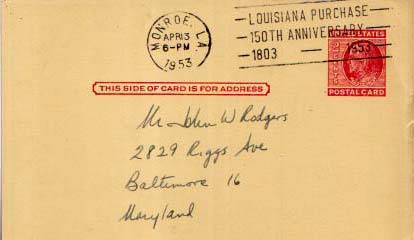 MONROE, LA
APR 13
6-PM
1953
LOUISIANA PURCHASE
150TH ANNIVERSARY
1803 — 1953
UNITED STATES
POSTAL CARD
THIS SIDE OF CARD IS FOR ADDRESS
Mr John W Rodgers
2829 Riggs Ave
Baltimore 16
Maryland